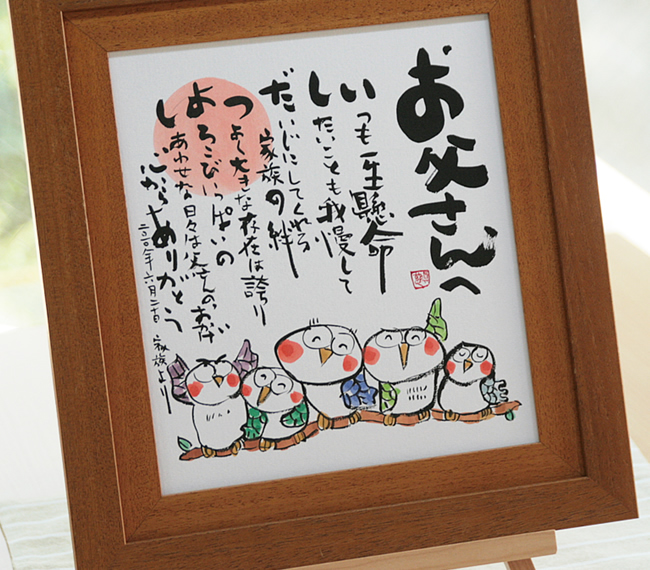 お父さんへ
いつも一生懸命
したいことも我慢して
だいじにしてくれる
家族の絆
つよく大きな存在は誇り
よろこびいっぱいの
しあわせな日々は父さんのおかげ
心からありがとう
年六月 家族より